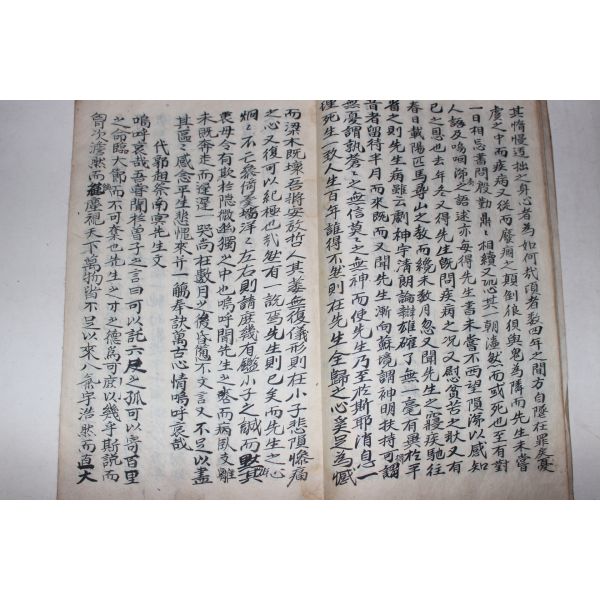 其惰慢遊拙之身心者為如何哉頃者數四年之間方自墮在罪戾憂
虞之中而疾病又從而廢痼之顛倒狼狽與鬼為隣而先生未嘗
一日相忘書問殷勤鼎鼎相續又恐其一朝溘然而或死也至有對
人語及嗚咽涕之語迷亦每得先生書未嘗不西望隕涕以感知
己之恩也去年冬又得先生旣問疾病之况又慰貧苦之狀又有
春日載陽匹馬尋山之教而纔未數月忽又聞先生寢疾馳往
省之則先生病雖云劇神宇清朗論辯雄確了無一毫有異於平
昔者留待半月而來既而又聞先生漸向蘇境謂神明扶持可謂
無憂謂執葠之無信莫之無神而使先生乃至於斯耶消息一
理死生一致人生百年誰得不然則在先生全歸之心奚足為憾
而梁木既壞吾將安放哲人其萎無復儀形則在小子悲隕慘痛
之心又復可以紀極也哉然有一說焉先生則已矣而先生之心
炯炯不亡羹倚墻洋洋左右則請庶幾有鑑小子之誠而默其
喪母令有欺於隱微幽獨之中也嗚呼聞先生之葬而病臥支離
未既奔走而遲遲一哭尚在數月之後辱隨不文言又不足以盡
其區區感念平生悲愧來幷一觴奉訣萬古心情嗚呼哀哉
代郭趙祭南冥先生文
嗚呼哀哉吾嘗聞於曾子之言曰可以託六尺之孤可以寄百里
之命臨大節而不可奪也先生之才之德為可庶以幾乎斯說而
胷次澹然而絶塵視天下萬物皆不足以來八素宇浩然而直大